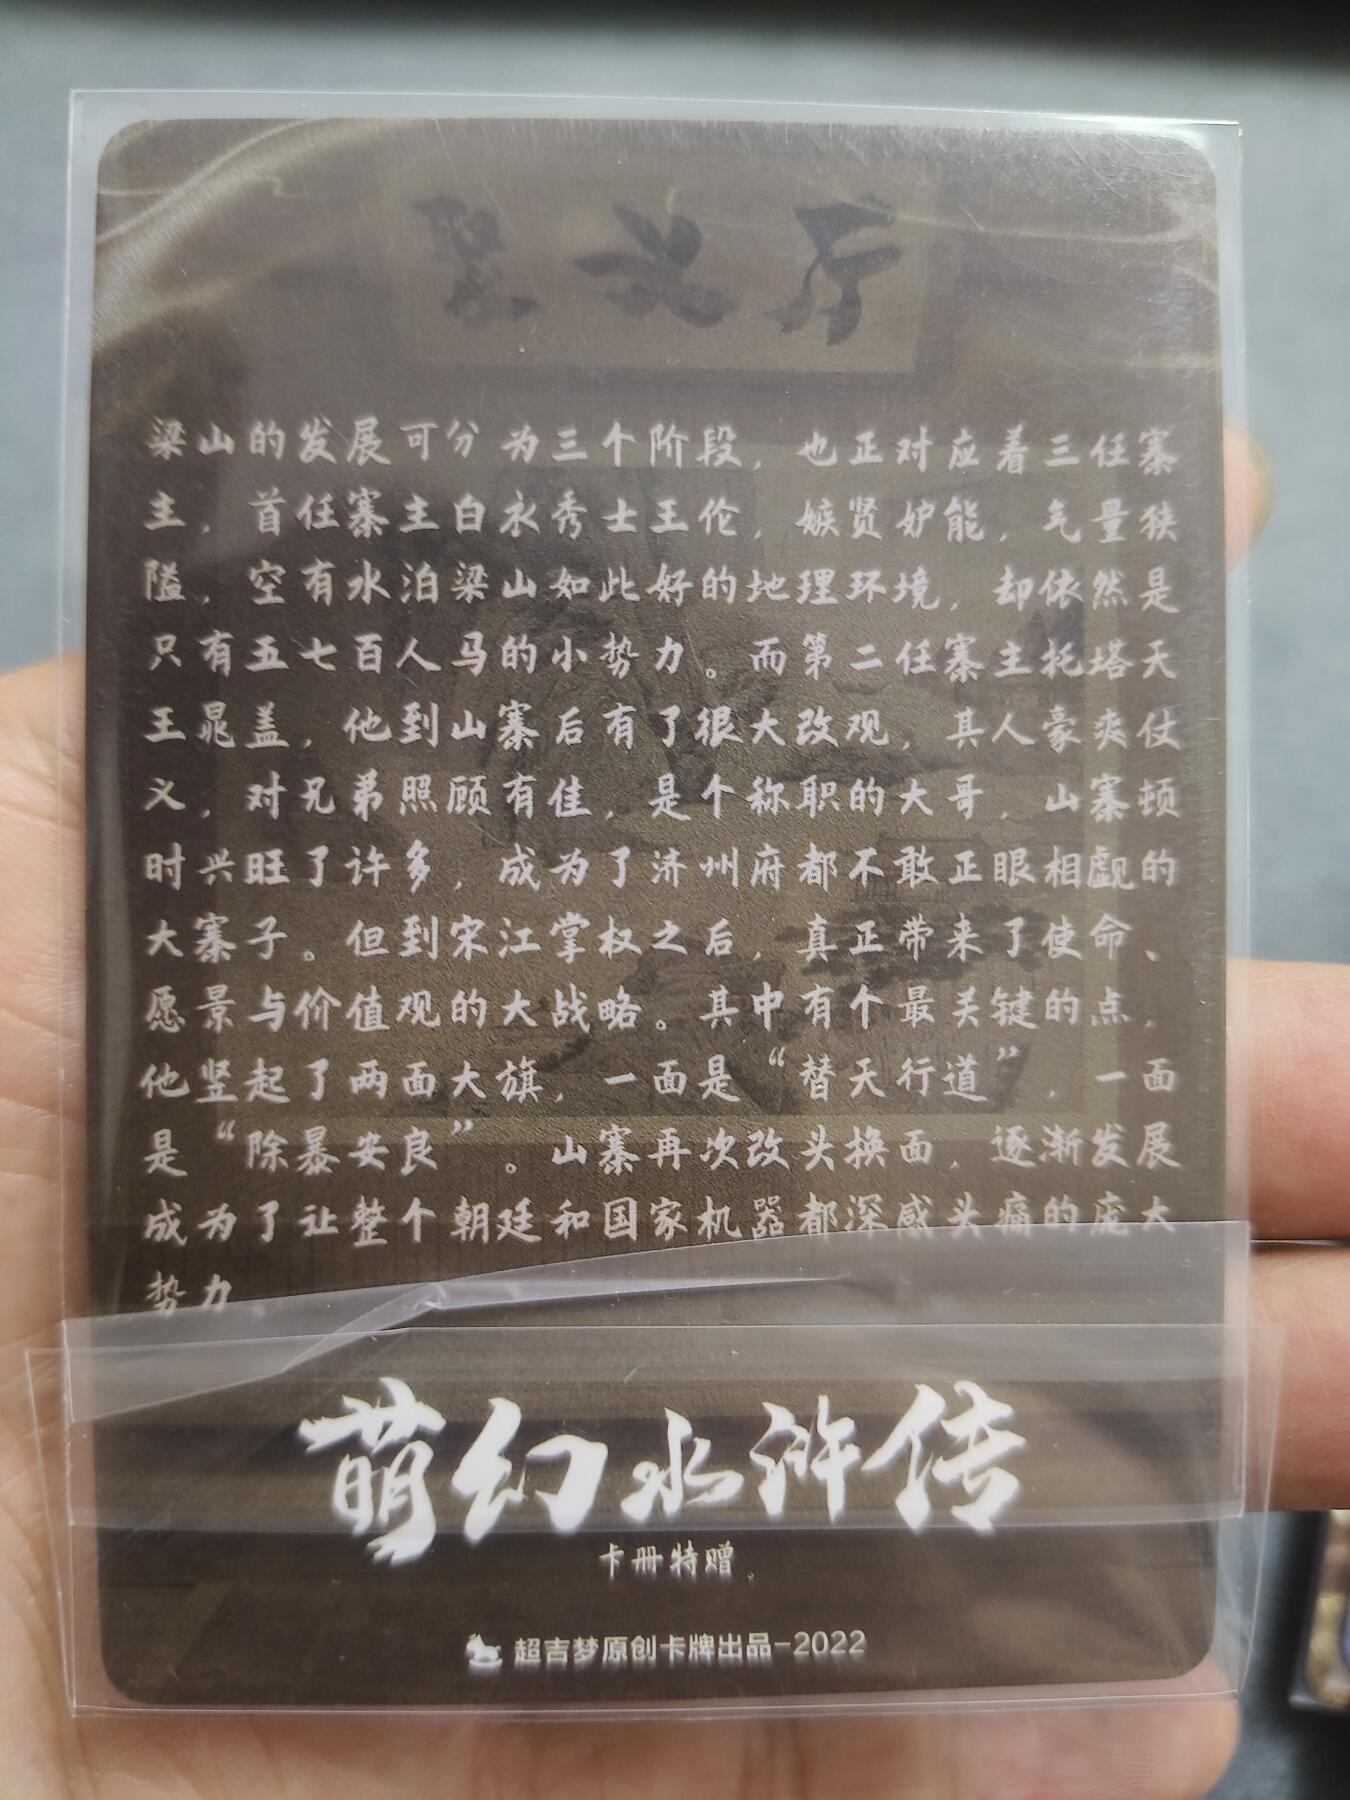 聚义厅
梁山的发展可分为三个阶段，也正对应着三任寨
主，首任寨主白衣秀士王伦，嫉贤妒能，气量狭
隘，空有水泊梁山如此好的地理环境，却依然是
只有五七百人马的小势力。而第二任寨主托塔天
王晁盖，他到山寨后有了很大改观，其人豪爽仗
义，对兄弟照顾有佳，是个称职的大哥，山寨顿
时兴旺了许多，成为了济州府都不敢正眼相觑的
大寨子。但到宋江掌权之后，真正带来了使命、
愿景与价值观的大战略。其中有个最关键的点，
他竖起了两面大旗，一面是“替天行道”，一面
是“除暴安良”。山寨再次改头换面，逐渐发展
成为了让整个朝廷和国家机器都深感头痛的庞大
势力
萌幻水浒传
卡册特赠
超吉梦原创卡牌出品-2022